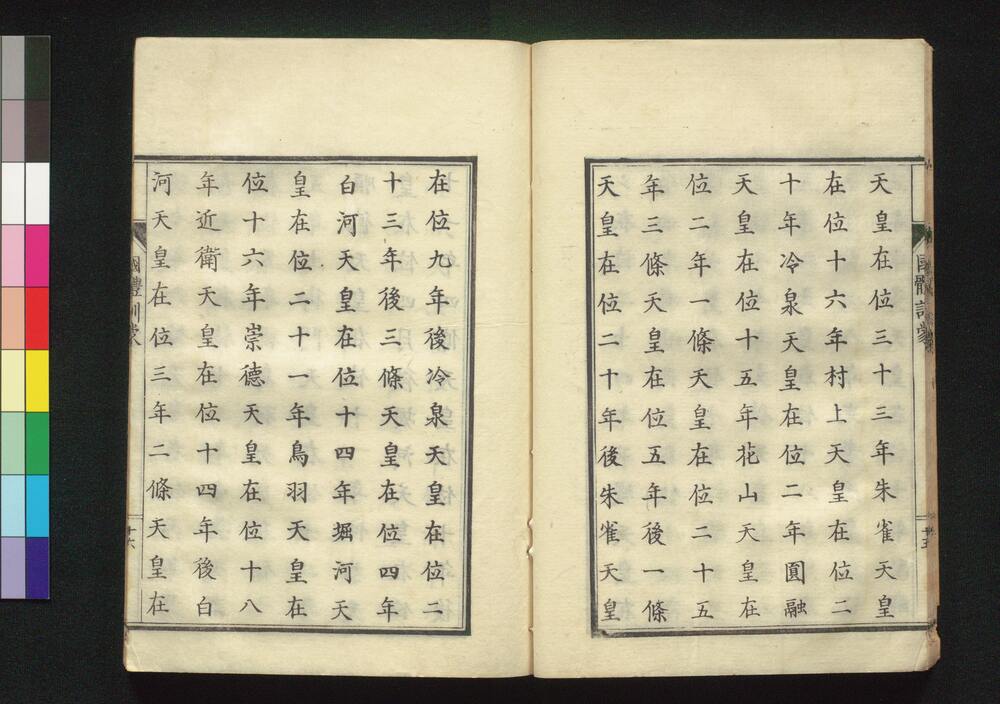 天皇在位三十三年朱雀天皇
在位十六年村上天皇在位二
十年冷泉天皇在位二年圓融
天皇在位十五年花山天皇在
位二年一條天皇在位二十五
年三條天皇在位五年後一條
天皇在位二十年後朱雀天皇
國體訓蒙
十五
在位九年後冷泉天皇在位二
十三年後三條天皇在位四年
白河天皇在位十四年堀河天
皇在位二十一年鳥羽天皇在
位十六年崇德天皇在位十八
年近衛天皇在位十四年後白
河天皇在位三年二條天皇在
國體訓蒙
十六